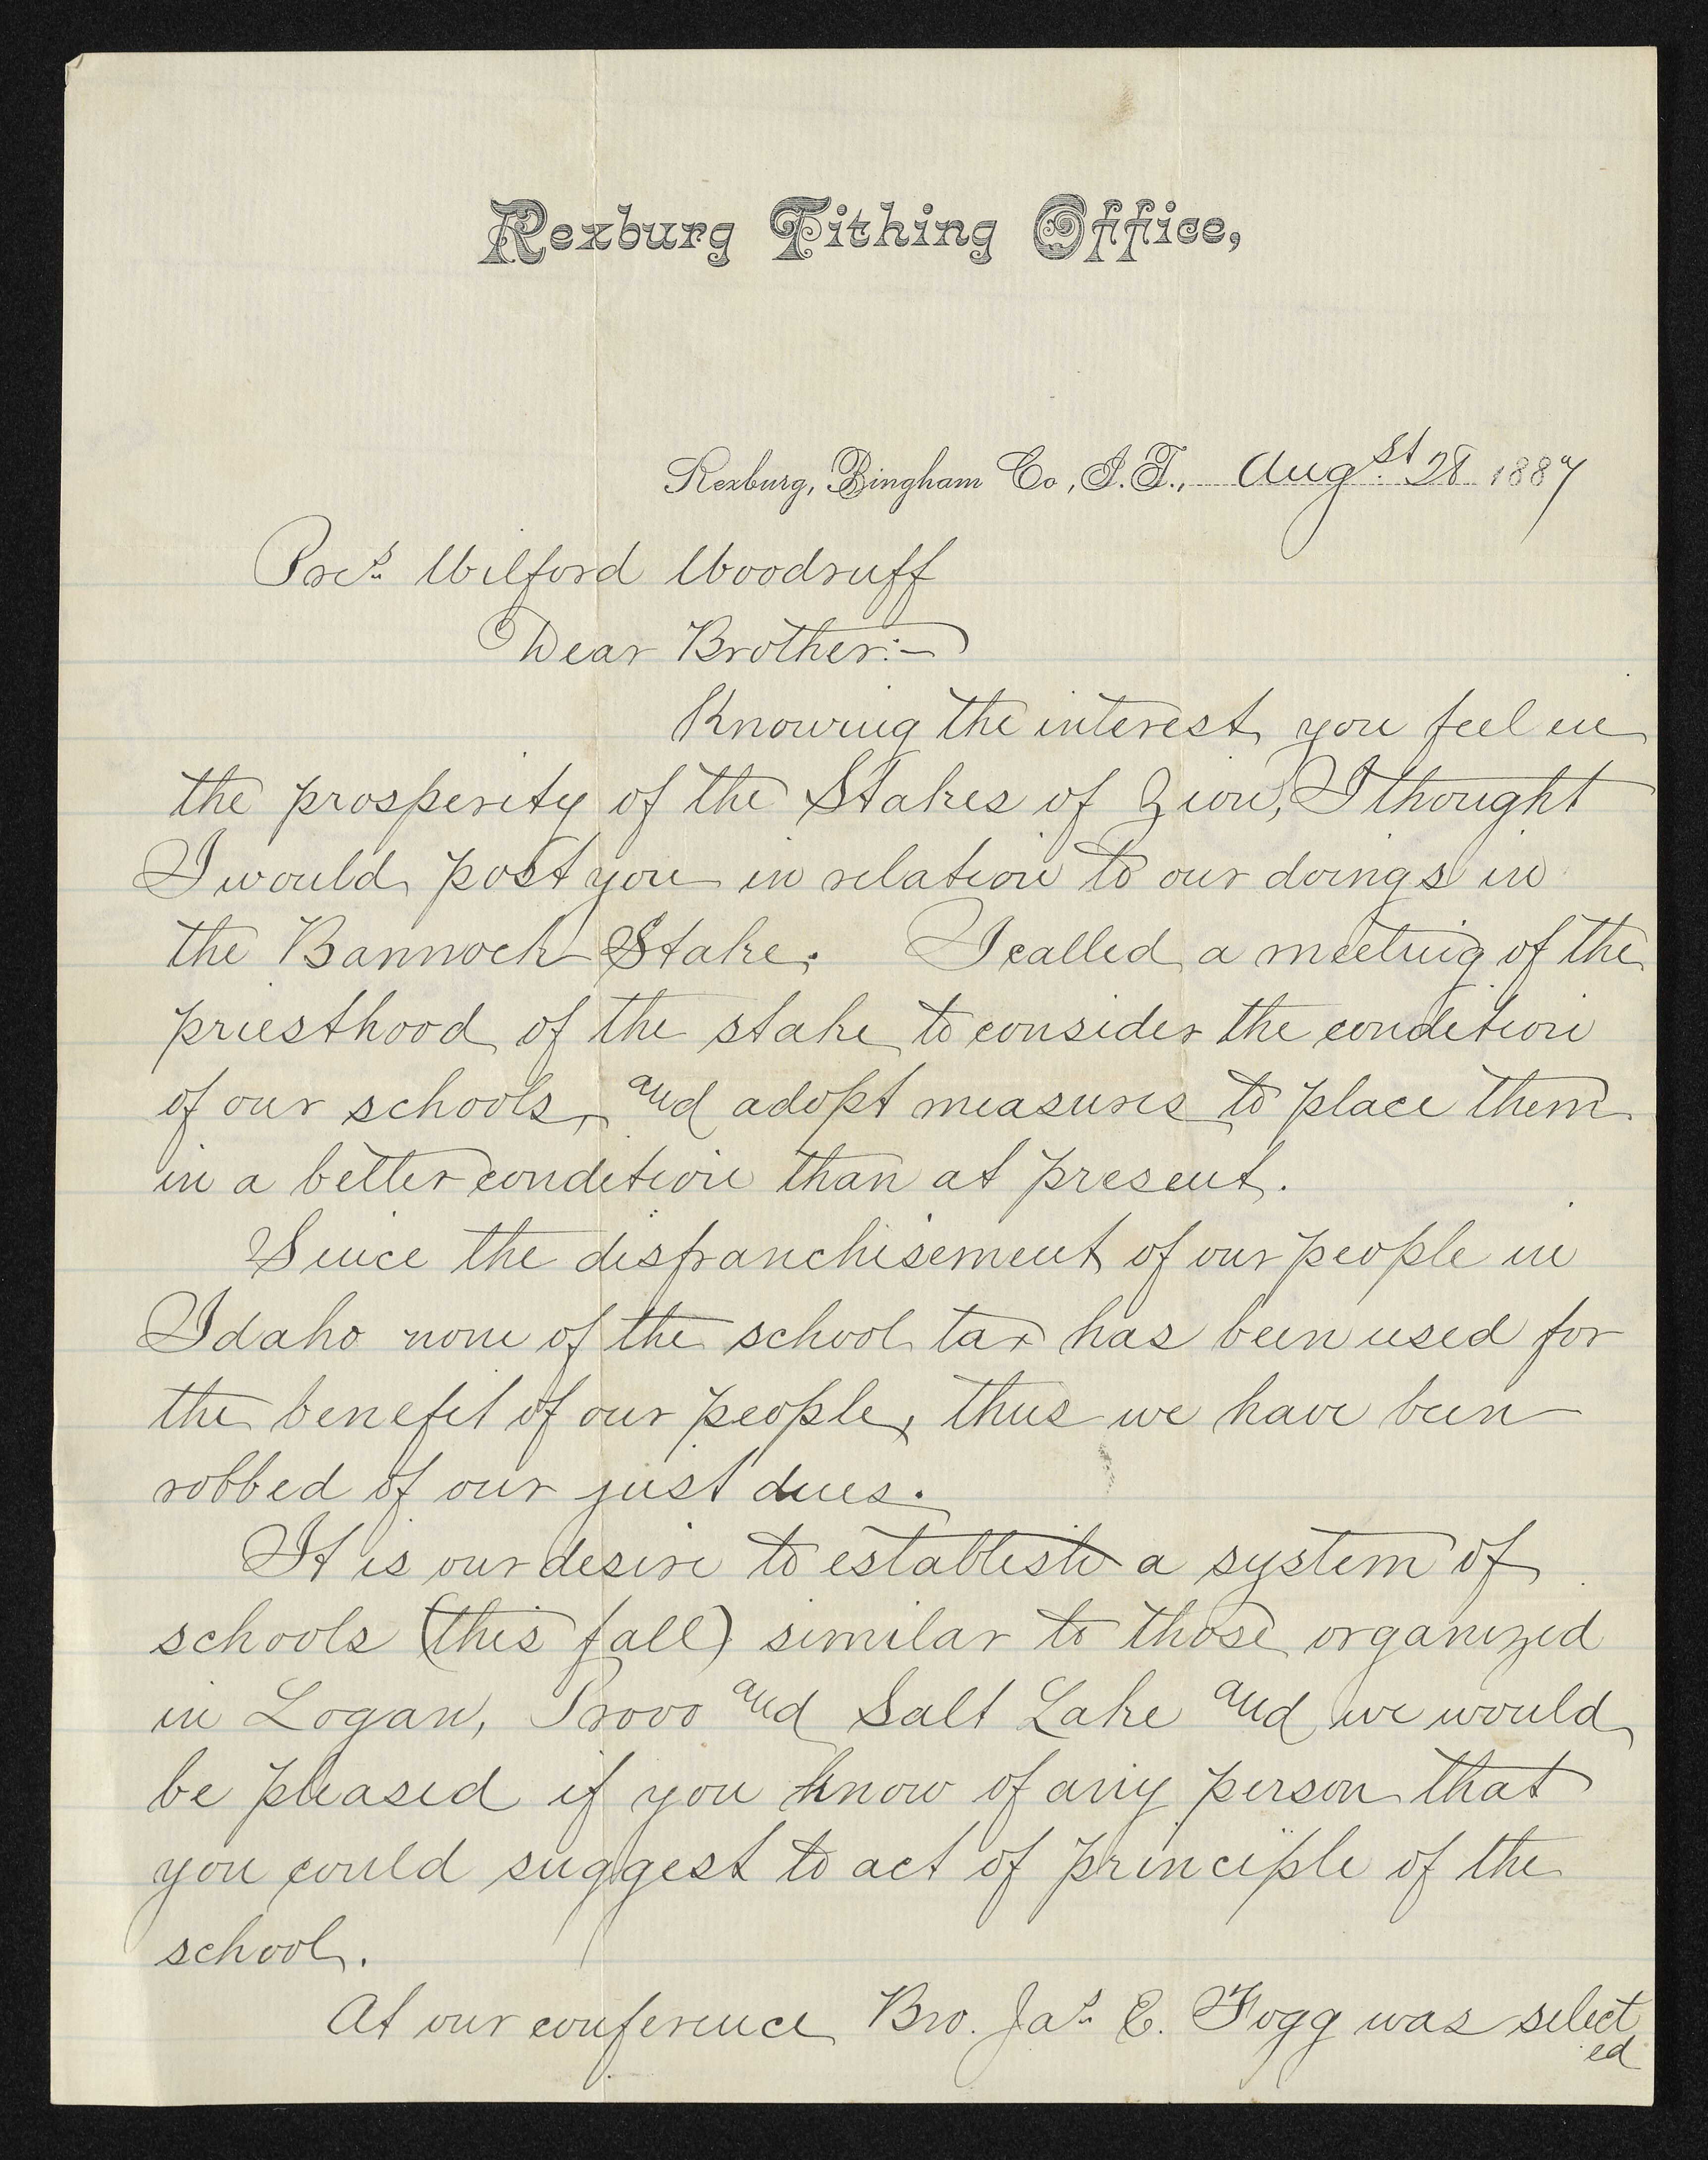 Rexburg Tithing Office,
Rexburg, Bingham Co, I. T., Augst. 28 1887
Pres. Wilford Woodruff
Dear Brother:—
Knowing the interest you feel in
the prosperity of the Stakes of Zion, I thought
I would post you in relation to our doings in
the Bannock Stake. I called a meeting of the
priesthood of the stake to consider the condition
of our schools, and adopt measures to place them
in a better condition than at present.
Since the disfranchisement of our people in
Idaho none of the school tax has been used for
the benefit of our people, thus we have been
robbed of our just dues.
It is our desire to establish a system of
schools (this fall) similar to those organized
in Logan, Provo and Salt Lake and we would
be pleased if you know of any person that
you could suggest to act of principle of the
school.
At our conference Bro. Jas. E. Fogg was select
ed